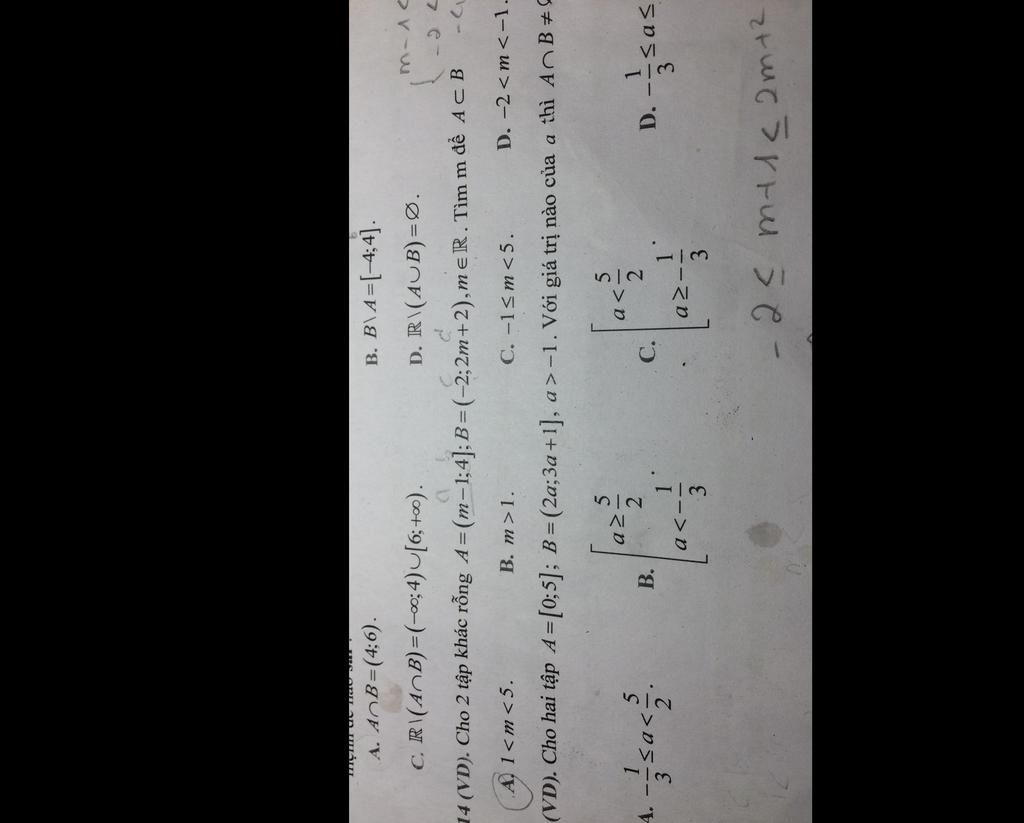 A. A∩B=(4;6). B. B\A=[-4;4].
C. ℝ\(A∩B)=(-∞;4)∪[6;+∞). D. ℝ\(A∪B)=∅.
14 (VD). Cho 2 tập khác rỗng A=(m-1;4];B=(-2;2m+2),m∈ℝ. Tìm m để A⊂B
A. 1<m<5. B. m>1. C. -1≤m<5. D. -2<m<-1.
(VD). Cho hai tập A=[0;5]; B=(2a;3a+1], a>-1. Với giá trị nào của a thì A∩B≠
A. -1/3≤a<5/2. B. [a≥5/2 a<-1/3. C. [a<5/2 a≥-1/3. D. -1/3≤a≤
m-1<
-2<
a b c d
-2≤ m+1≤2m+2